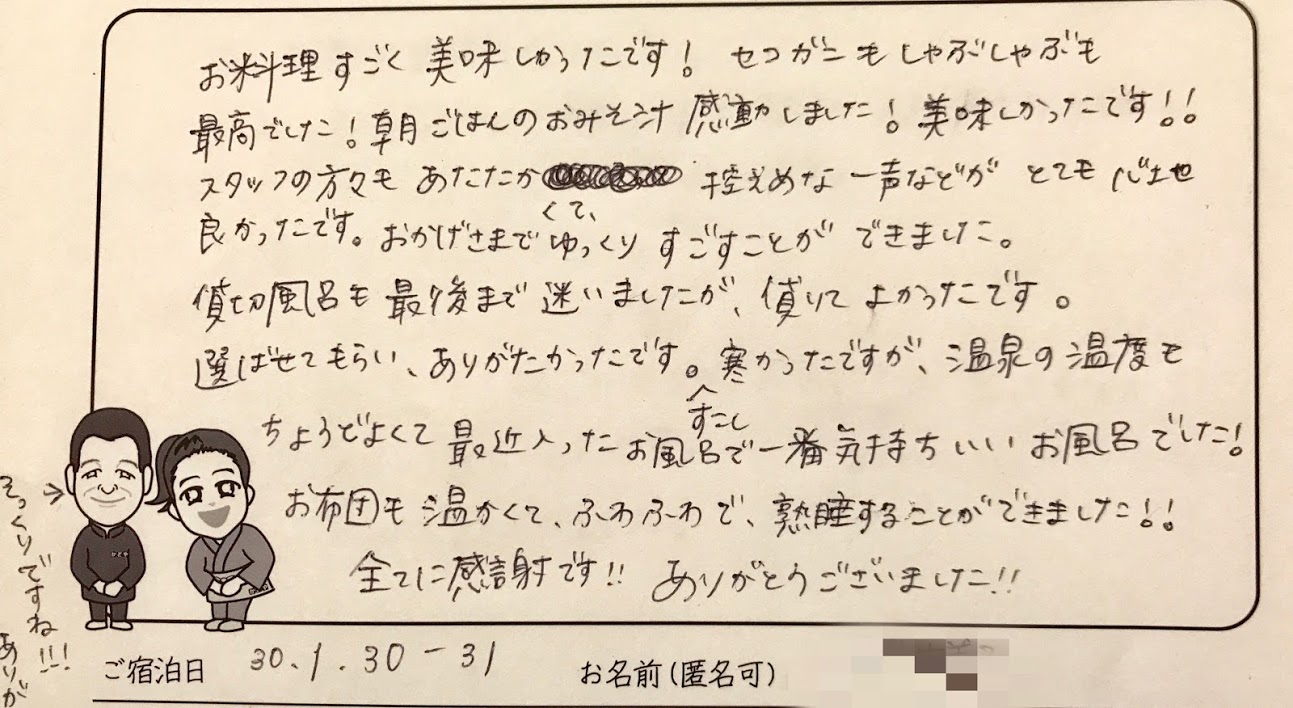 お料理すごく美味しかったです！ セコガニもしゃぶしゃぶも
最高でした！朝ごはんのおみそ汁 感動しました！美味しかったです！！
スタッフの方々も あたたか 控えめな一声などが とても心地
くて、
良かったです。おかげさまでゆっくり すごすことが できました。
貸切風呂も最後まで迷いましたが、借りて よかったです。
選ばせてもらい、ありがたかったです。寒かったですが、温泉の温度も
すこし
ちょうどよくて 最近入ったお風呂で一番気持ちいい お風呂でした！
お布団も温かくて、ふわふわで、熟睡することができました！！
全てに感謝です！！ ありがとうございました！！
→
そっくりですね！！！
ありが
ご宿泊日 30.1.30－31 お名前(匿名可)